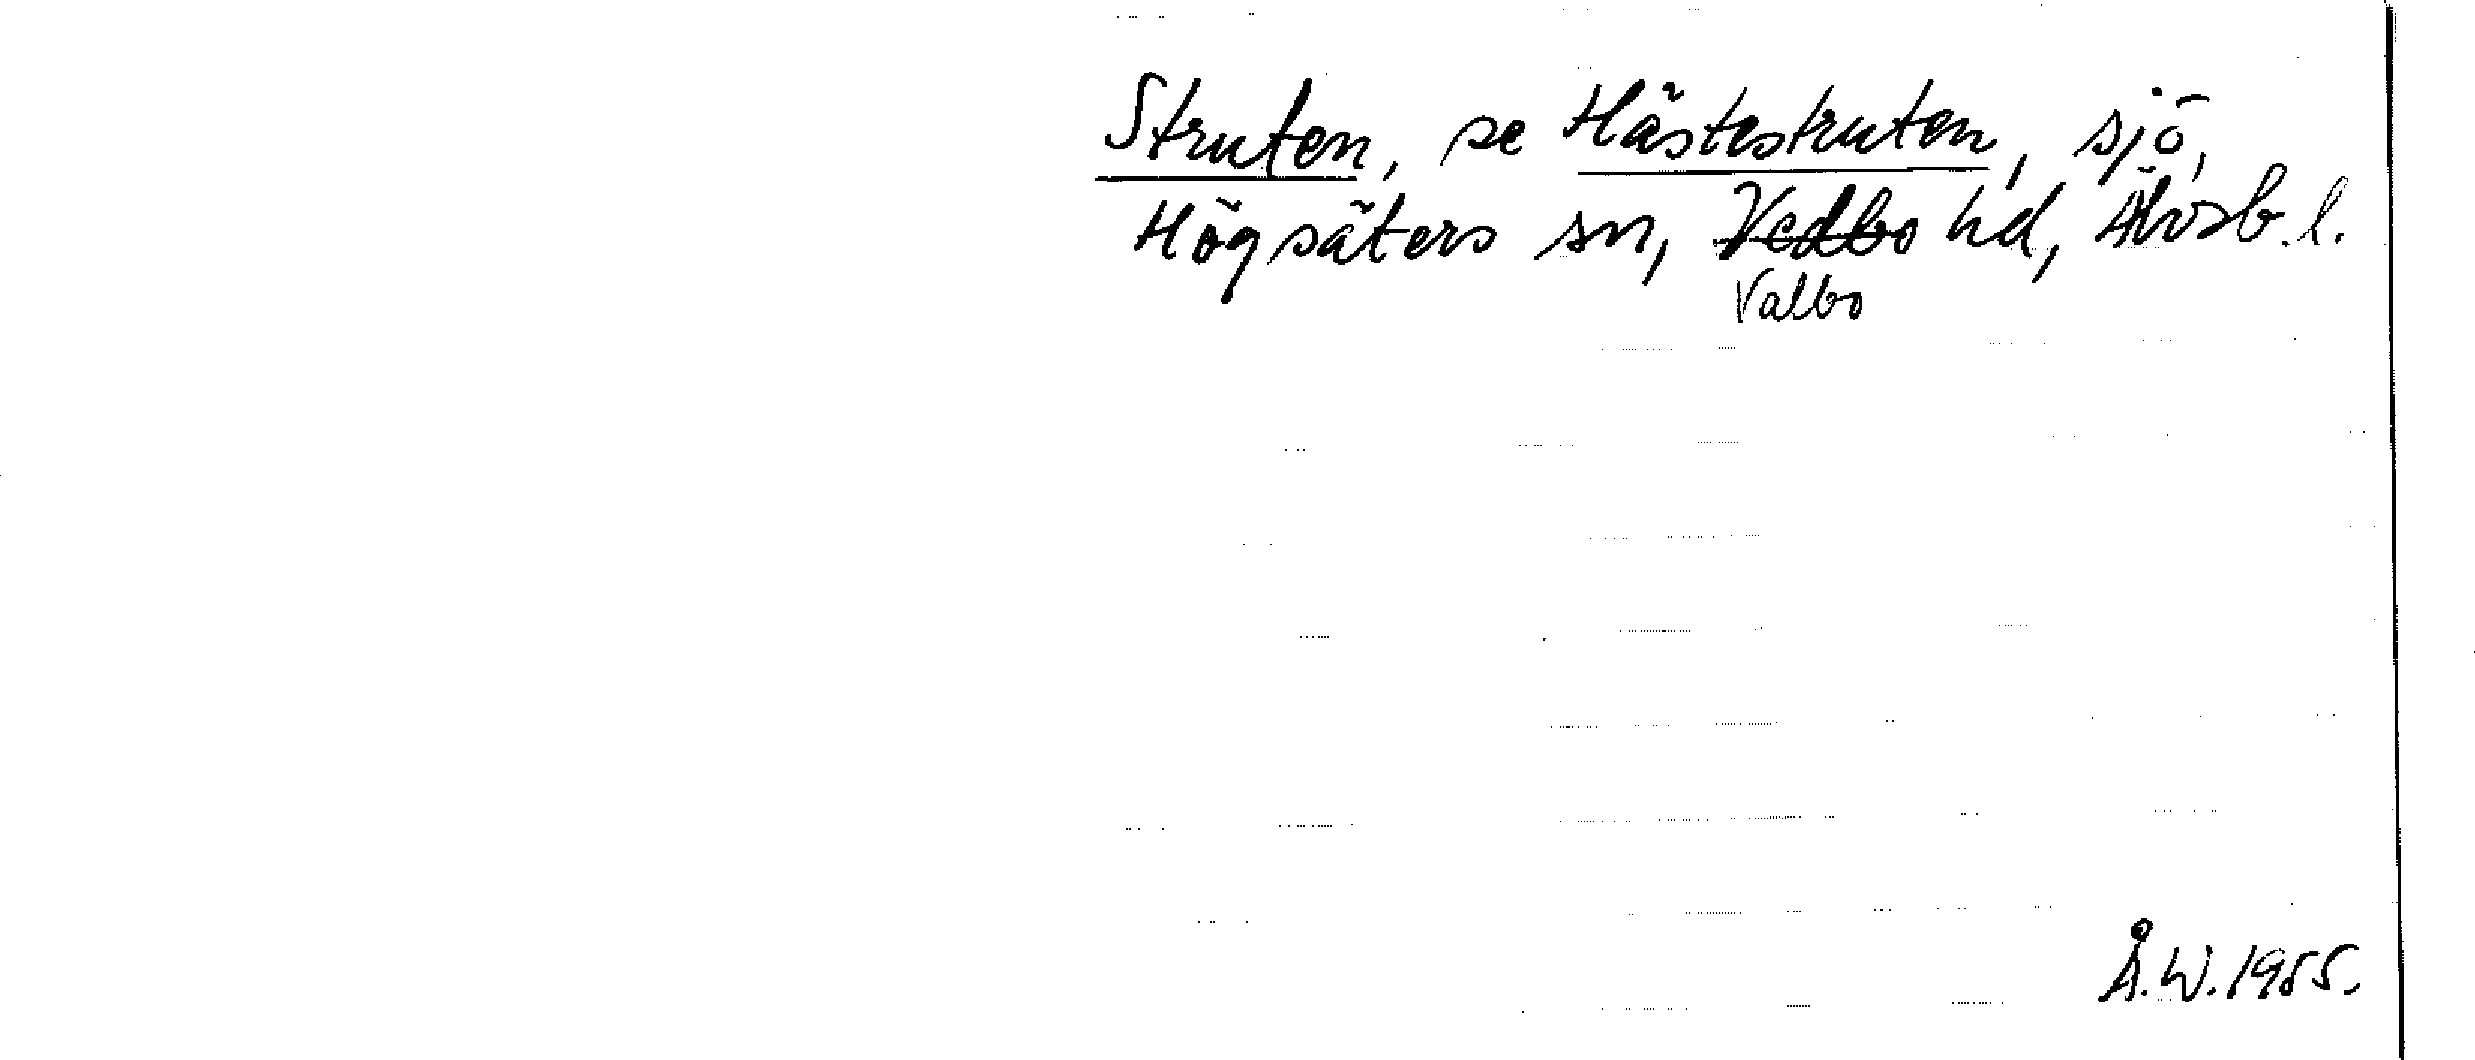 Struten, se Hästestruten, sjö,
Högsäters sn, Vedbo hd, Älvsb. l.
Valbo
Å.W. 1955.